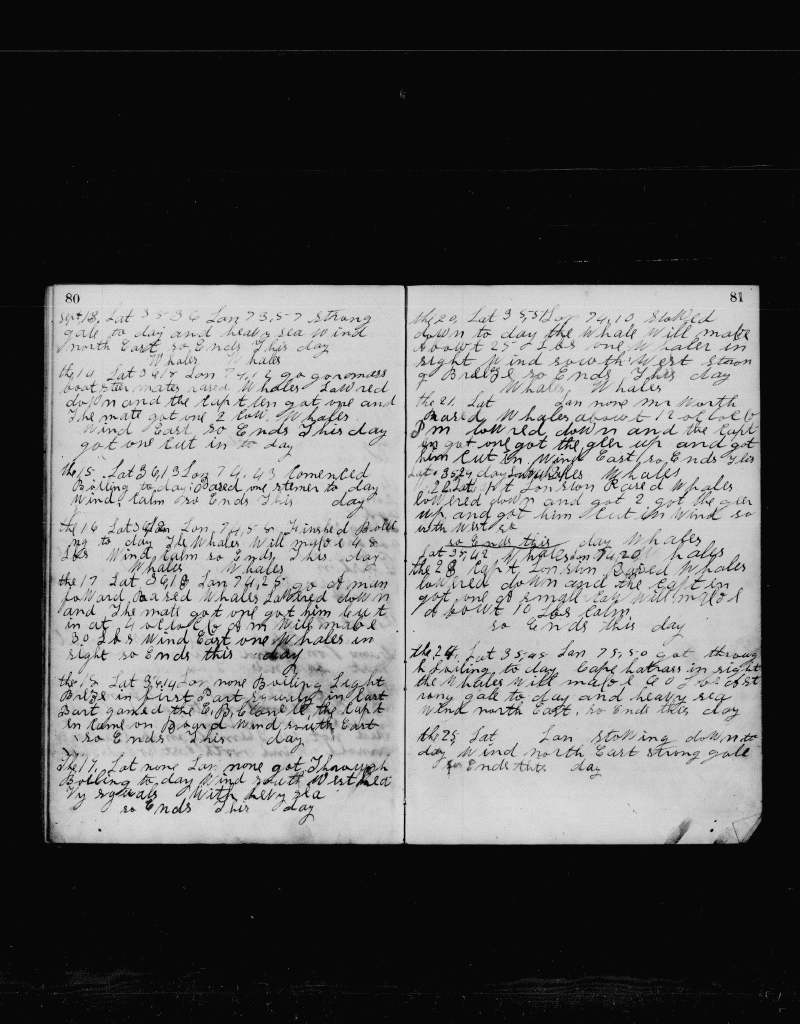 80
Sept 13, Lat 35-36 Lon 73,57 strong
gale to day and heavy sea Wind
north East so Ends This day
Whales Whales
the 14 Lat 34,18 Lon 74, go
boat star mates rased Whales Lowred
down and the Captin got one and
The mate got one 2 Cow Whales
Wind East so Ends This day
got one Cut in to day
the 15 Lat 36,13 Lon 74,43 Comenced
Boiling to day Rased one stemer to day
Wind, Calm so Ends This day
the 16 Lat Lon, 74,58, Finshed Boili
ng to day The Whales Will make 48
Lbs Wind, Calm so Ends, This day
Whales Whales
the 17 Lat 36,18 Lon 74,25, go A man
foward Rased Whales Lowred down
and The mate got one got him Cut
in at 4 oclock P m Will make
30 Lbs Wind East one Whales in
sight so Ends this day
the 18 Lat 34,14 Lon none Boiling Light
Breze in first Part in Last
Part gamed the the Capt
in Came on Board Wind south East
so Ends This day
The 19, Lat none Lon none got Through
Boiling to day Wind south West hea
vy squals With hevy sea
so Ends This day
81
the 20, Lat 35,51 Lon 74,10 stowed
down to day the Whale Will make
Abowt 25 Lbs one Whaler in
sight Wind sowth West stron
g Breeze so Ends This day
Whales Whales
the 21, Lat Lon none mr North
Rased Whales abowt 12 oclock
P m lowred down and the Capt
in got one got the geer up and got
him Cut in Wind East so Ends This
Lat 35,54 day Whales
22 Capt Jonston Rased Whales
lowred down and got 2 got the geer
up and got him Cut in Wind so
wth West
so Ends this day Whales
Lat 37,42 Whales Lon 74,20 Whales
the 23 Capt, Jonston Rased Whales
lowered down and the Captin
got one A small Cow Will make
A bowt 10 Lbs Calm
so Ends this day
the 24, Lat 35,45 Lon 75,50 got throug
h boiling to day Cape hatrass in sight
the Whales Will make 60 Lbs A st
rong gale to day and heavy sea
Wind north East, so Ends this day
the 25, Lat Lon stowing down to
day Wind north East strong gale
so Ends this day